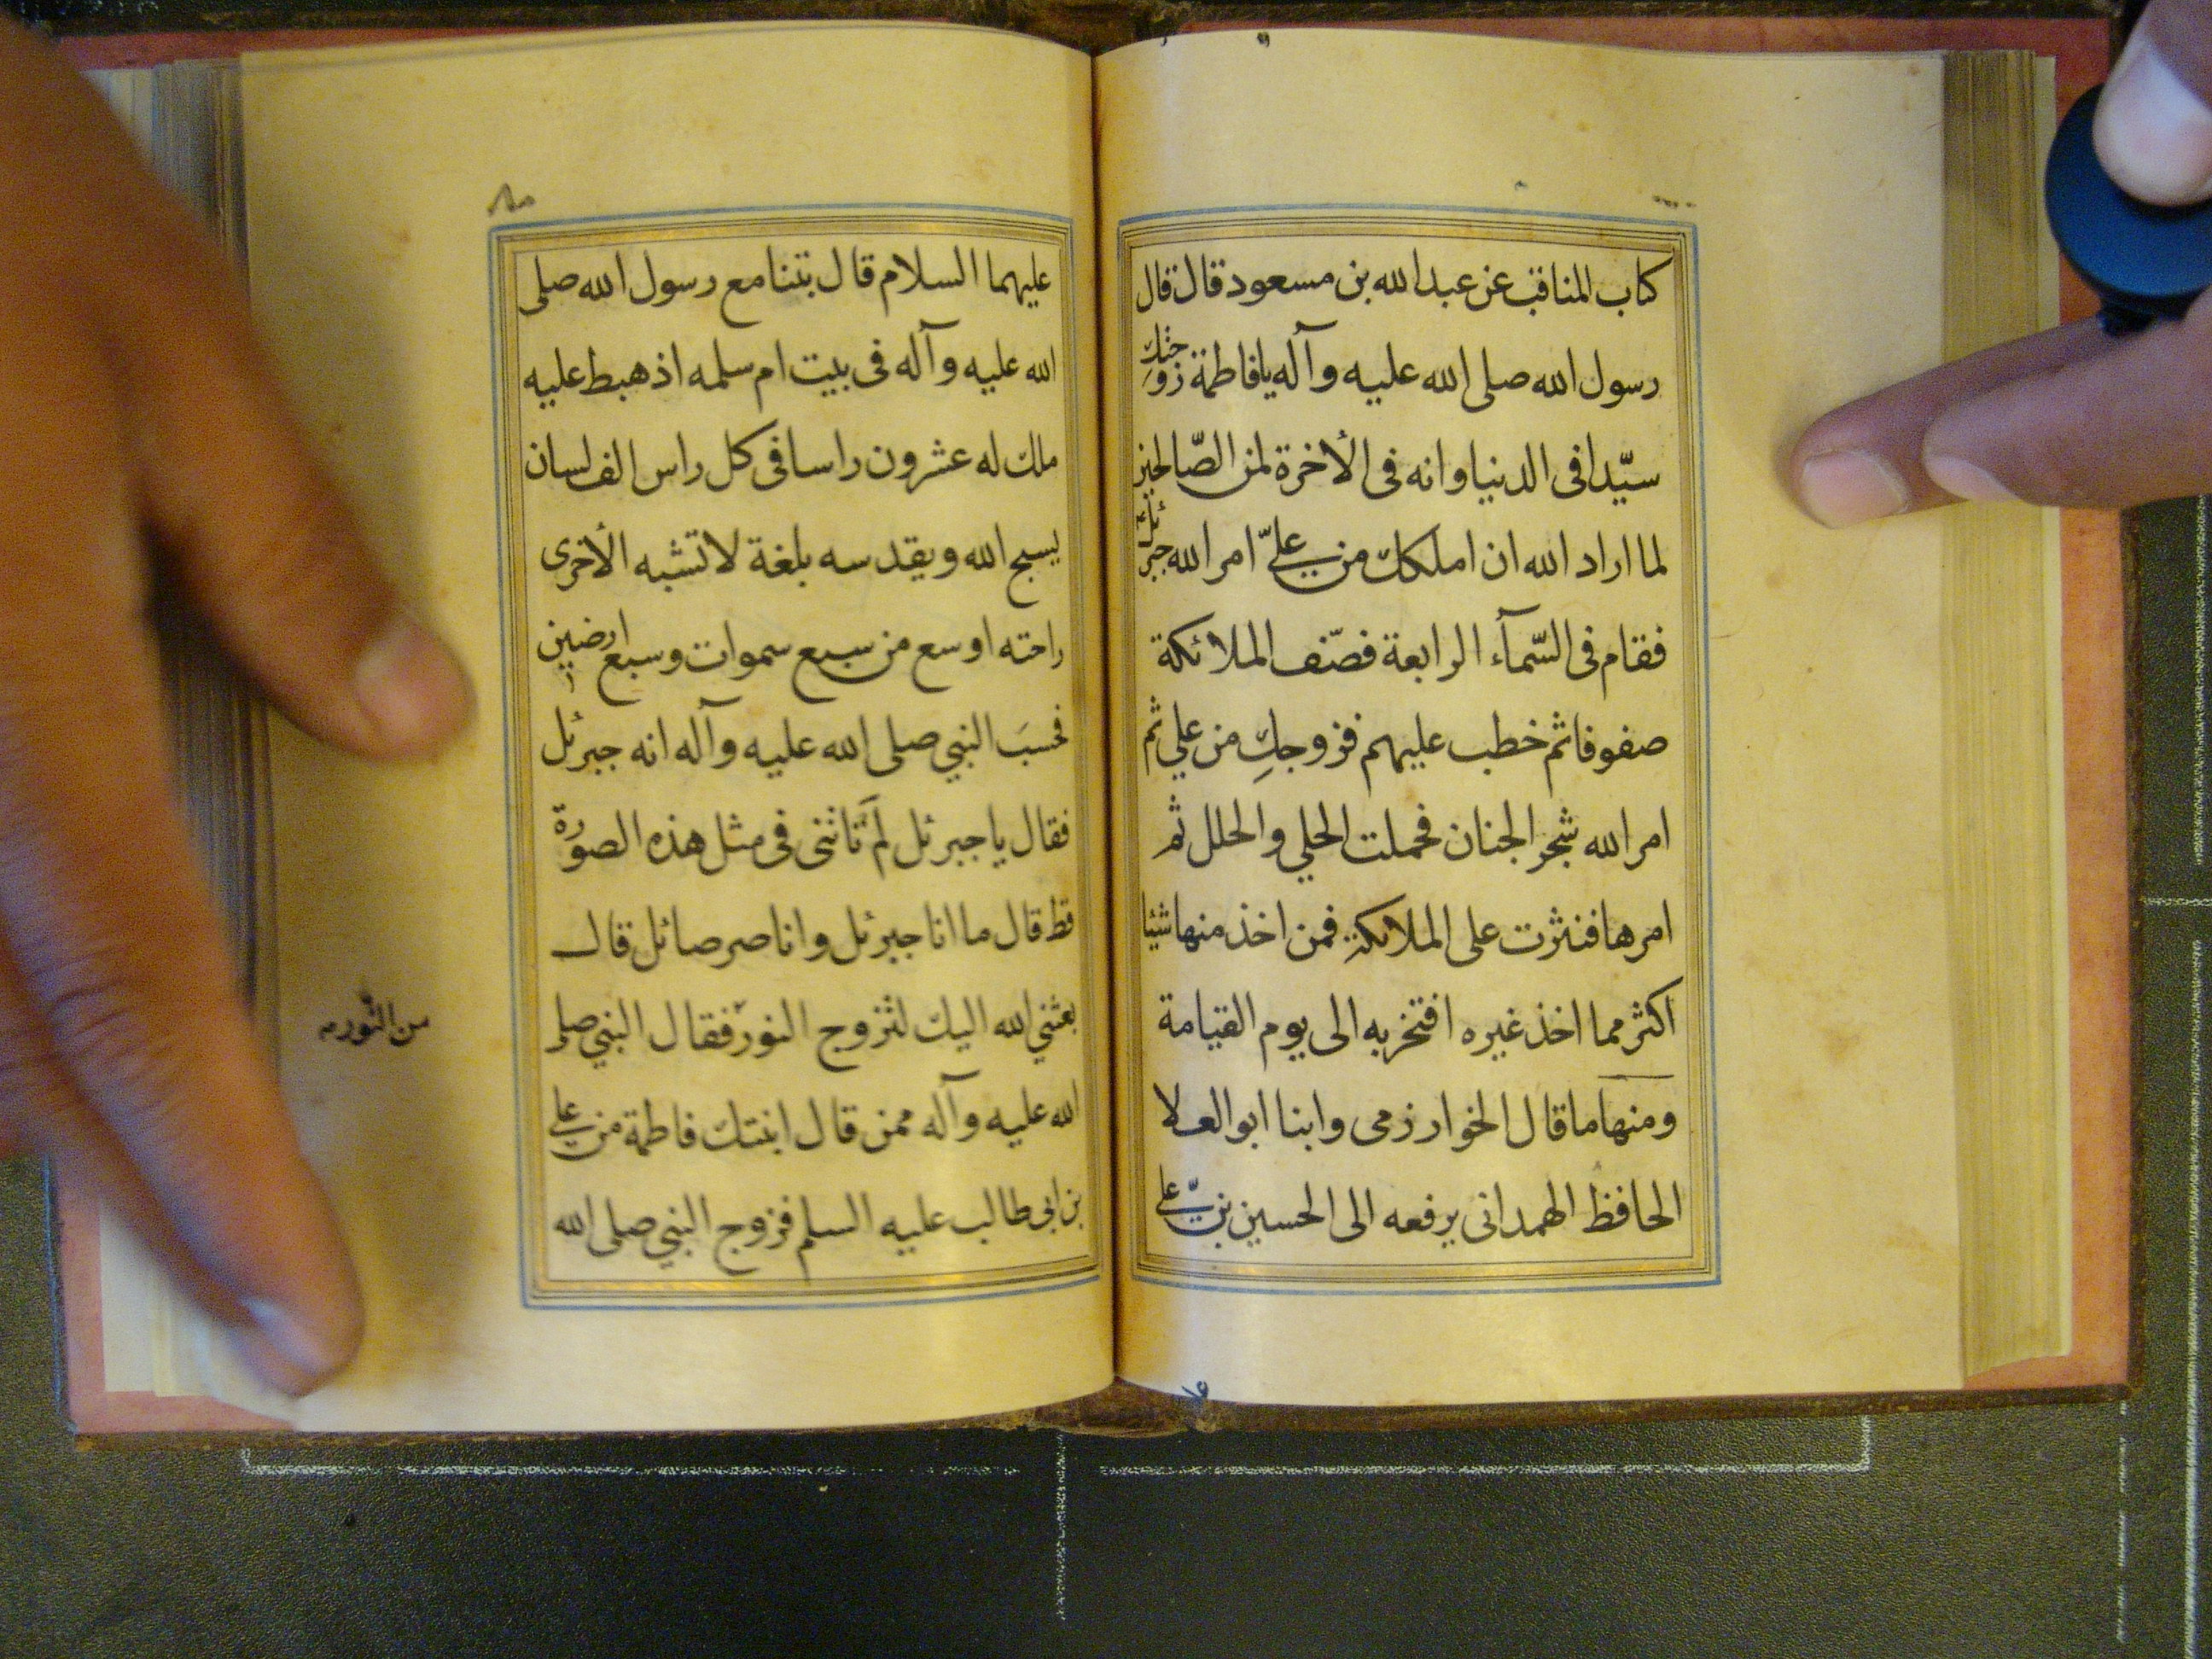 كتاب المناقب عن عبد الله بن مسعود قال قال
رسول الله صلى الله عليه وآله يا فاطمة زوجتكِ
سيّدا فى الدنيا وانه فى الأخرة لمن الصّالحين
لما اراد الله ان املككِ من عليّ امر الله جبرئل
فقام فى السّمآء الرابعة فصّف الملائكة
صفوفا ثم خطب عليهم فزوجكِ من علي ثم
امر الله شجر الجنان فحملت الحلي والحلل ثم
امرها فنثرت على الملائكة فمن اخذ منها شيئا
اكثر مما اخذ غيره افتخر به الى يوم القيامة
ومنها ما قال الخوارزمى وابنا ابو العلا
الحافظ الهمدانى يرفعه الى الحسين بن عليّ
عليهما السلام قال بتنا مع رسول الله صلى
الله عليه وآله فى بيت ام سلمه اذ هبط عليه
ملك له عشرون راسا فى كل راس الف لسان
يسبح الله ويقدسه بلغة لا تشبه الأخرى
راحته اوسع من سبع سموات وسبع ارضين
فحسبَ النبي صلى الله عليه وآله انه جبرئل
فقال يا جبرئل لَم تَاتنى فى مثل هذه الصورة
قط قال ما انا جبرئل وانا صرصائل قال
بعثني الله اليك لتزوج النور فقال النبي صلى
من النور
الله عليه وآله ممن قال ابنتك فاطمة من علي
بن ابى طالب عليه السلم فزوج النبي صلى الله